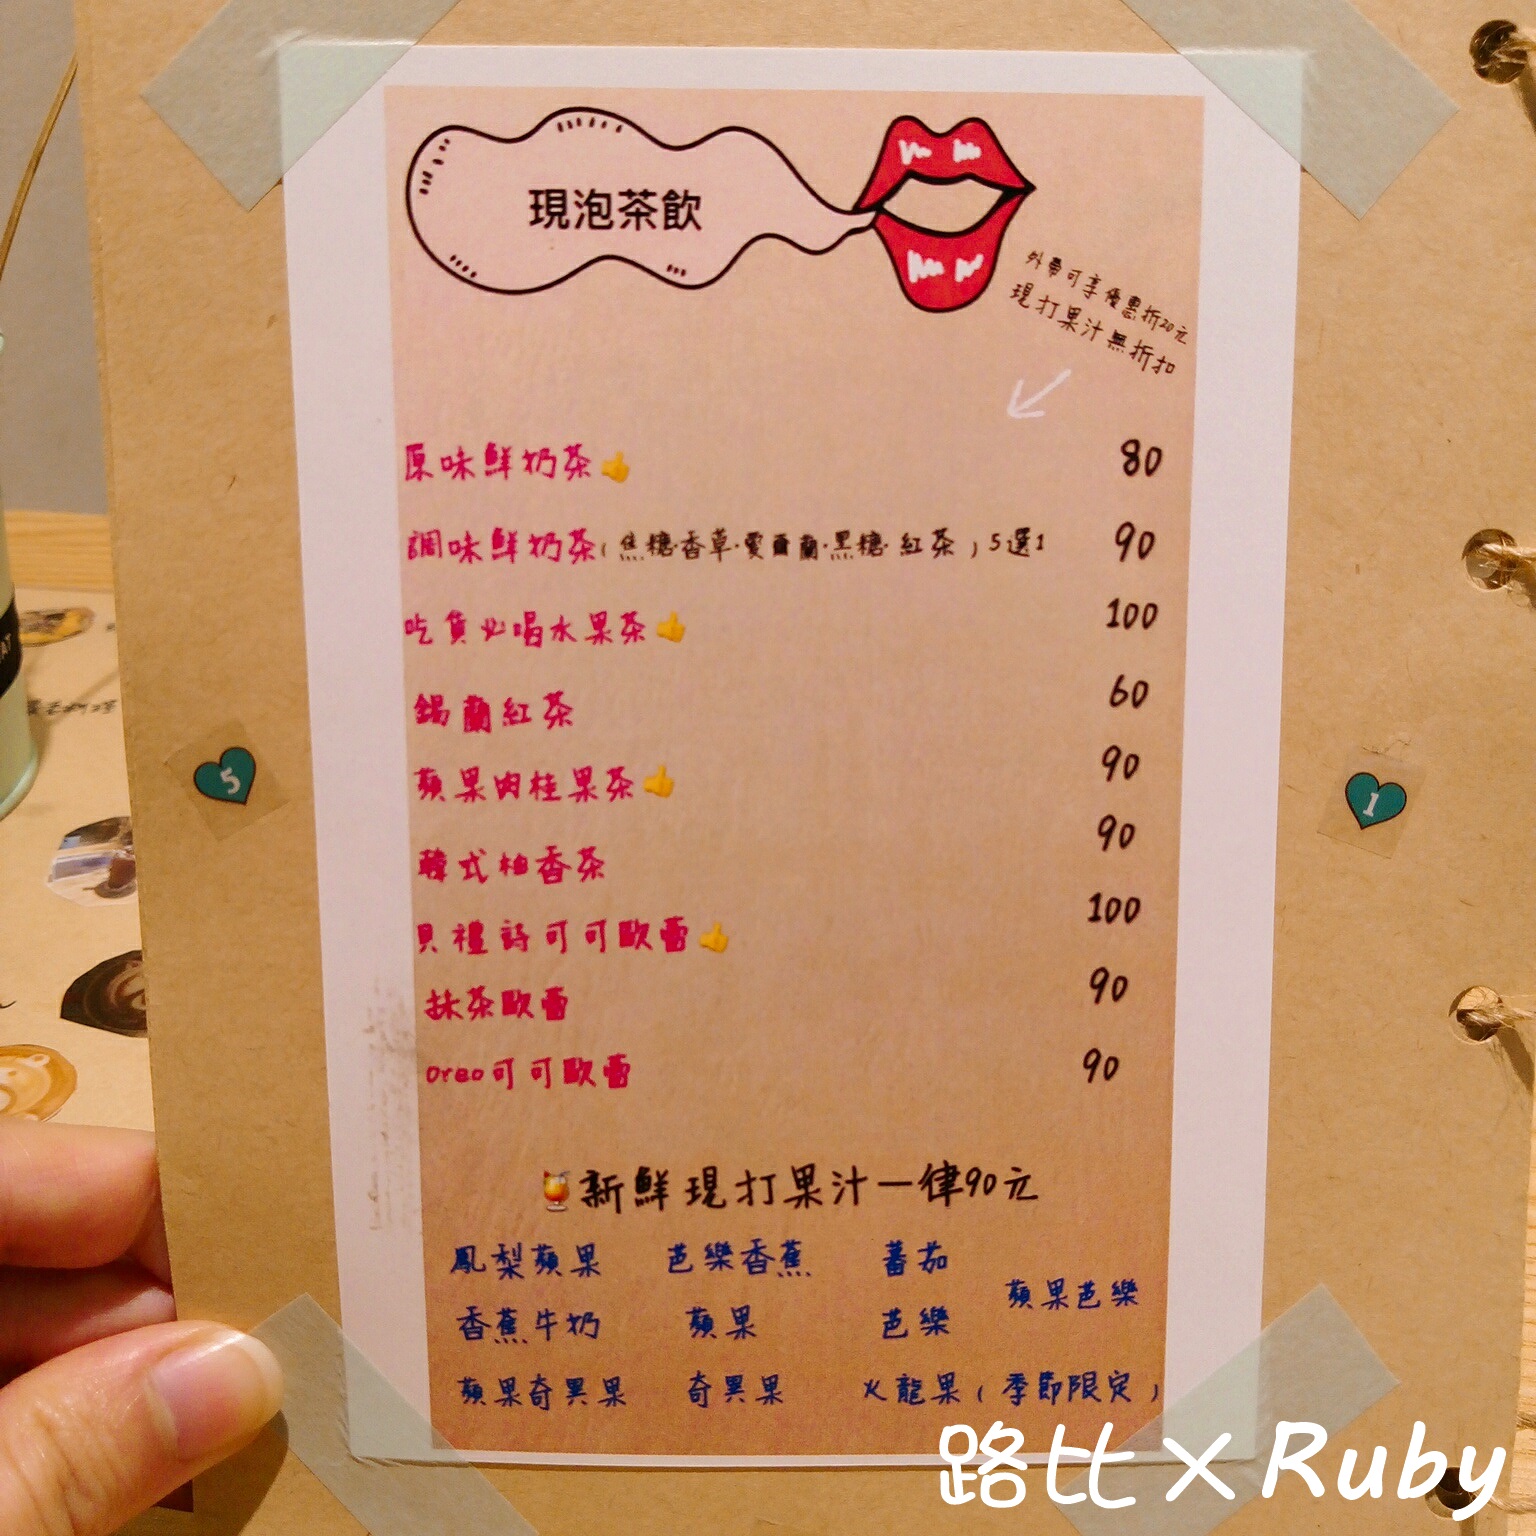 現泡茶飲
外帶可享優惠折20元
現打果汁無折扣
原味鮮奶茶👍 80
調味鮮奶茶(焦糖·香草·愛爾蘭·黑糖·紅茶)5選1 90
吃貨必喝水果茶👍 100
錫蘭紅茶 60
蘋果肉桂果茶👍 90
韓式柚香茶 90
貝禮詩可可歐蕾👍 100
抹茶歐蕾 90
oreo可可歐蕾 90
5
1
🍹新鮮現打果汁一律90元
鳳梨蘋果 芭樂香蕉 蕃茄
蘋果芭樂
香蕉牛奶 蘋果 芭樂
蘋果奇異果 奇異果 火龍果(季節限定)
路比×Ruby